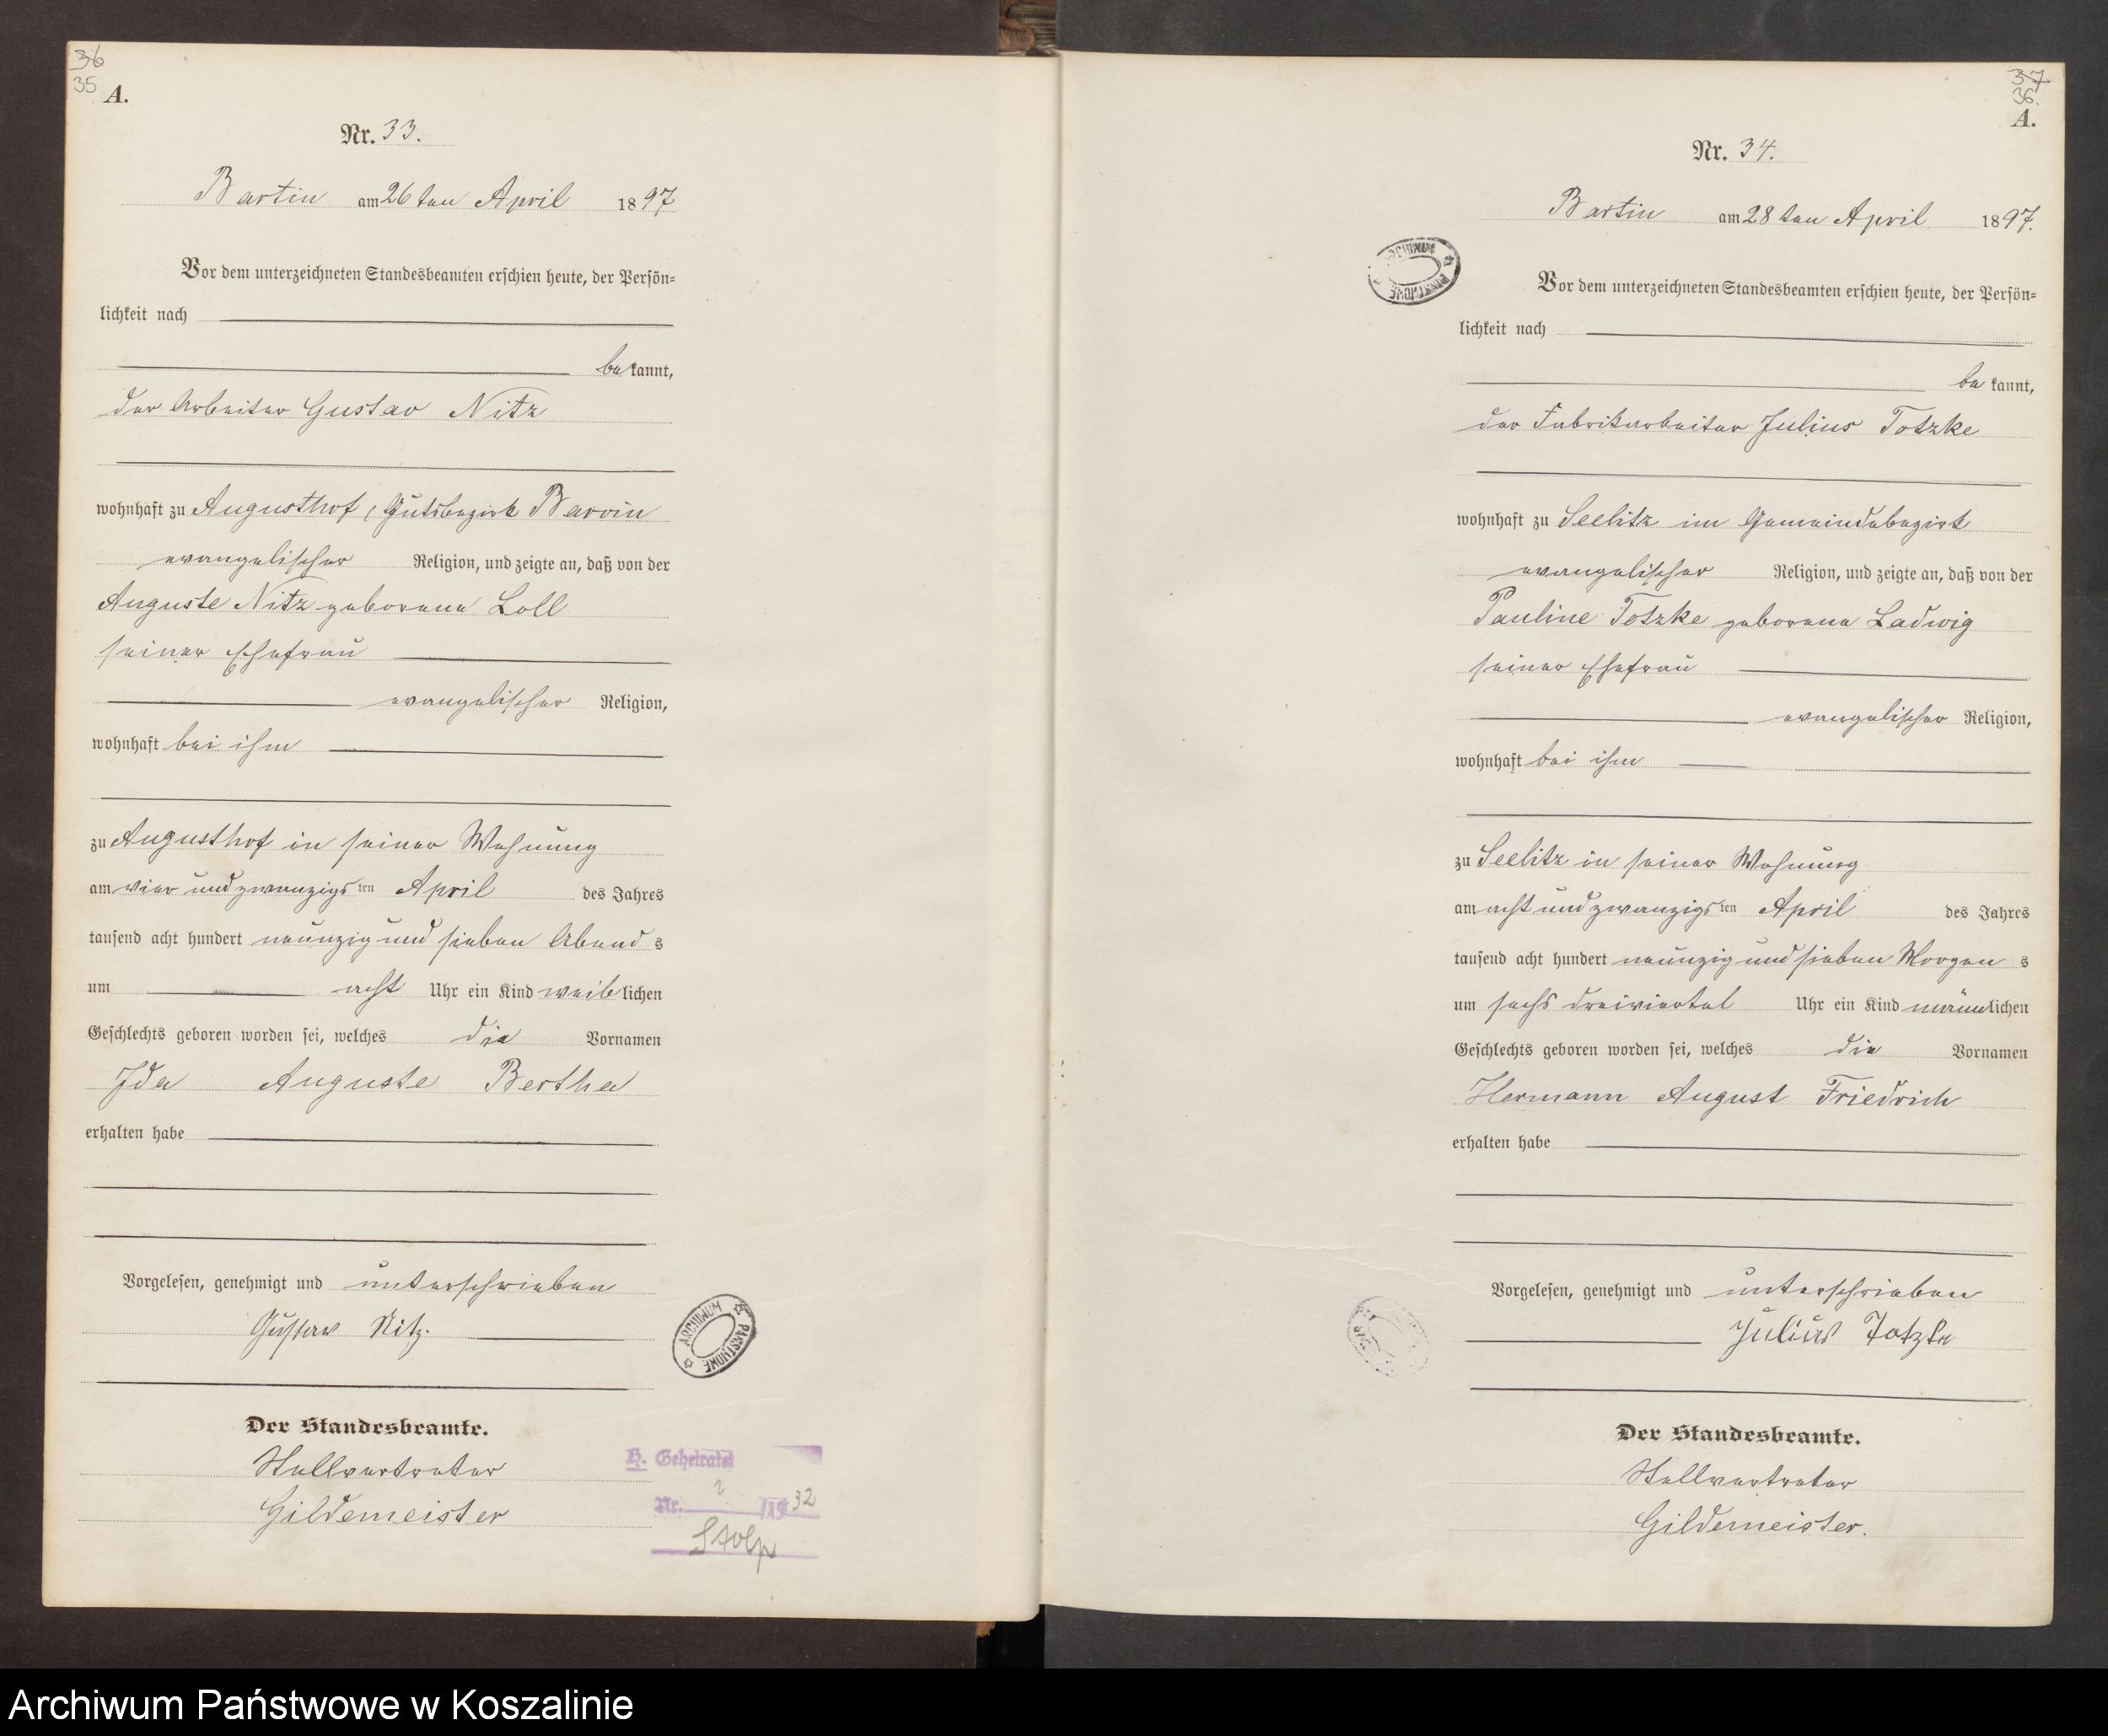 36
35
A.
Nr. 33.
Bartin am 26ten April 1897
Vor dem unterzeichneten Standesbeamten erschien heute, der Persön=
lichkeit nach
bekannt,
der Arbeiter Gustav Nitz
wohnhaft zu Augusthof, Gutsbezirk Barvin
evangelischer Religion, und zeigte an, daß von der
Auguste Nitz geborene Loll
seiner Ehefrau
evangelischer Religion,
wohnhaft bei ihm
zu Augusthof in seiner Wohnung
am vier und zwanzigsten April des Jahres
tausend acht hundert neunzig und sieben Abends
um acht Uhr ein Kind weiblichen
Geschlechts geboren worden sei, welches die Vornamen
Ida Auguste Bertha
erhalten habe
Vorgelesen, genehmigt und unterschrieben
Gustav Nitz.
ARCHIWUM PAŃSTWOWE
Der Standesbeamte.
Stellvertreter
Gildemeister
H. Geheiratet
Nr. /1932
Stolp
37
36.
A.
Nr. 34.
Bartin am 28ten April 1897.
ARCHIWUM PAŃSTWOWE
Vor dem unterzeichneten Standesbeamten erschien heute, der Persön=
lichkeit nach
bekannt,
der Fabrikarbeiter Julius Totzke
wohnhaft zu Seelitz im Gemeindebezirk
evangelischer Religion, und zeigte an, daß von der
Pauline Totzke geborene Ladwig
seiner Ehefrau
evangelischer Religion,
wohnhaft bei ihm
zu Seelitz in seiner Wohnung
am acht und zwanzigsten April des Jahres
tausend acht hundert neunzig und sieben Morgens
um sechs dreiviertel Uhr ein Kind männlichen
Geschlechts geboren worden sei, welches die Vornamen
Hermann August Friedrich
erhalten habe
Vorgelesen, genehmigt und unterschrieben
Julius Totzke
Der Standesbeamte.
Stellvertreter
Gildemeister.
Archiwum Państwowe w Koszalinie